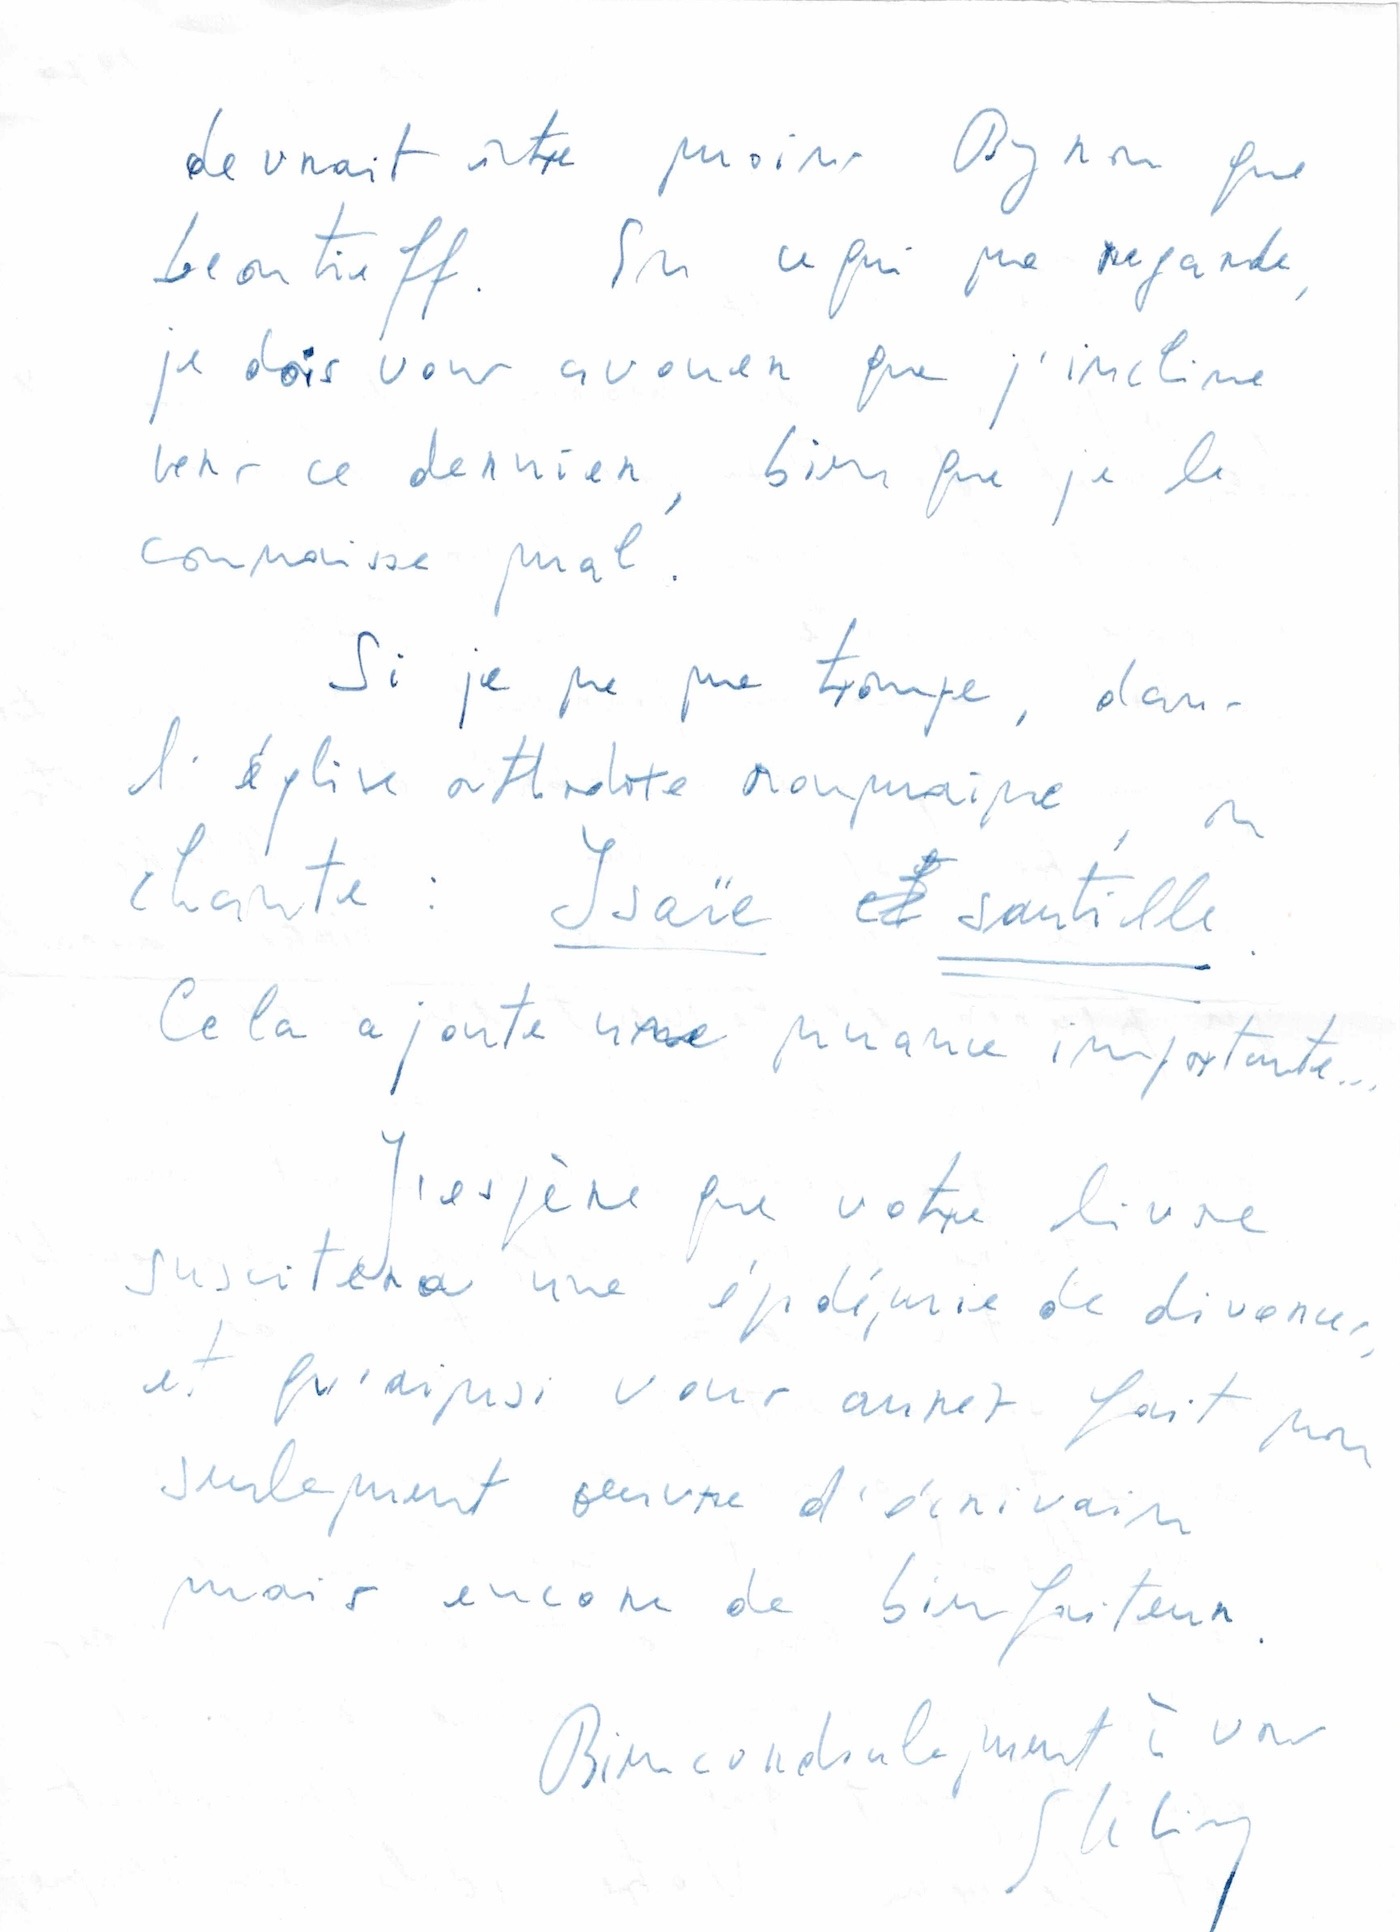 devrait être moins Byron que
Leontieff. En ce qui me regarde,
je dois vous avouer que j'incline
vers ce dernier, bien que je le
connaisse mal.
Si je ne me trompe, dans
l'église orthodoxe roumaine, on
chante : Isaïe sautille.
Cela ajoute une nuance importante...
J'espère que votre livre
suscitera une épidémie de divorces,
et qu'ainsi vous aurez fait non
seulement œuvre d'écrivain
mais encore de bienfaiteur.
Bien cordialement à vous